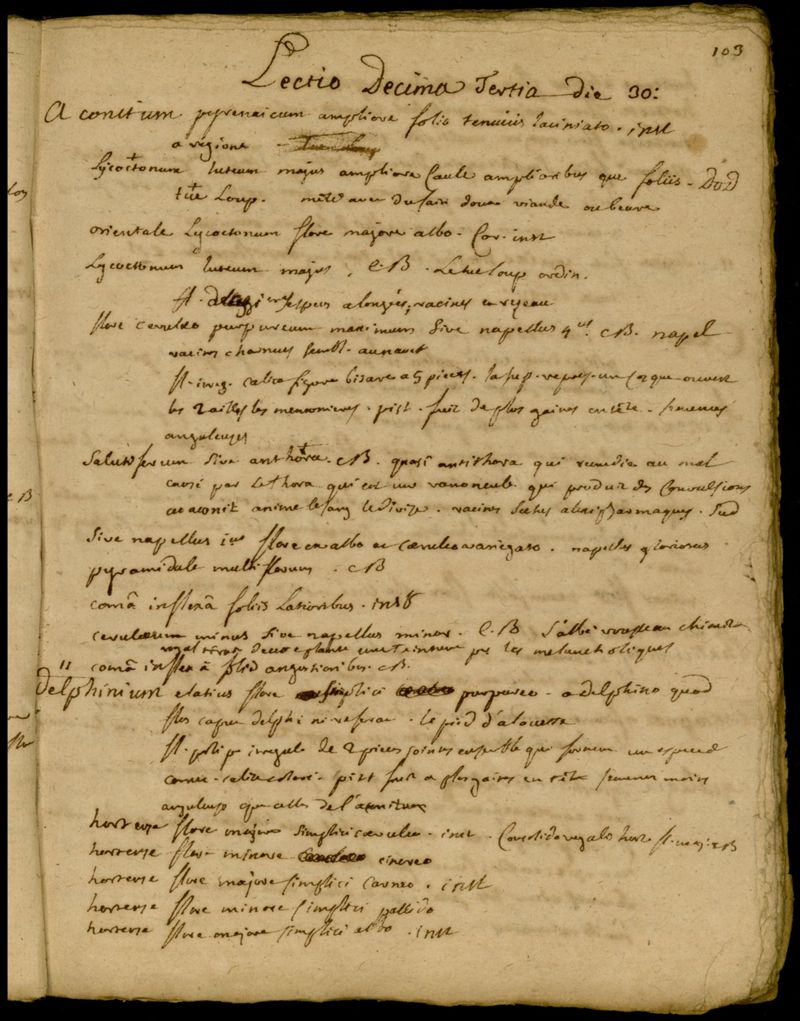 103
Lectio Decima Tertia die 30:
Aconitum pyrenaicum ampliore folio tenuius laciniato. inst
a regione
Lycoctonum luteum majus ampliore Caule amplioribus que foliis. Dod
tüe Loup. avec du sain doux viande ou beure
orientale Lycoctonum flore majore albo. Cor. inst
Lycoctonum luteum majus, C.B. Le tue loup ordin.
fl. alongés, racines en
flore ceruleo purpureum maximum Sive napellus 4us CB. napel
racines charnues sembl. au navet
fl. irreg. calice figure bisare a 5 pieces. la sup. repres. un casque ouvert
les 2 ailes les mentonieres. pist. fruit de plus. gaines en tête. semences
anguleuses
Salutiferum Sive anthora. CB. quasi antithora qui remedie au mal
causé par Le thora qui est une renoncule qui produit des Convulsions
aconit anime le sang le divise. racines
Sive napellus ius flore ex albo et caeruleo variegato. napellus gloriosus
pyramidale multiflorum. CB
comâ inflexâ foliis Latioribus. inst
ceruleum minus Sive napellus minor. C.B
pr les melancholiques
comâ inflexâ foliis angustioribus. CB.
Delphinium elatius flore simplici purpureo. a delphino quod
flos caput delphini referat. le pied d'alouette
fl. polip. irregul. de 2 pieces jointes ensemble qui forment une espece de
corne. calice coloré. pist fruit a plus. gaines en tête semences moins
anguleuses que celles de l'aconitum
hortense flore majore simplici caeruleo. inst. Consolida regalis hort. fl. maj. CB
hortense flore minore cinereo
hortense flore majore simplici carneo. inst
hortense flore minore simplici pallido
hortense flore majore simplici albo. inst